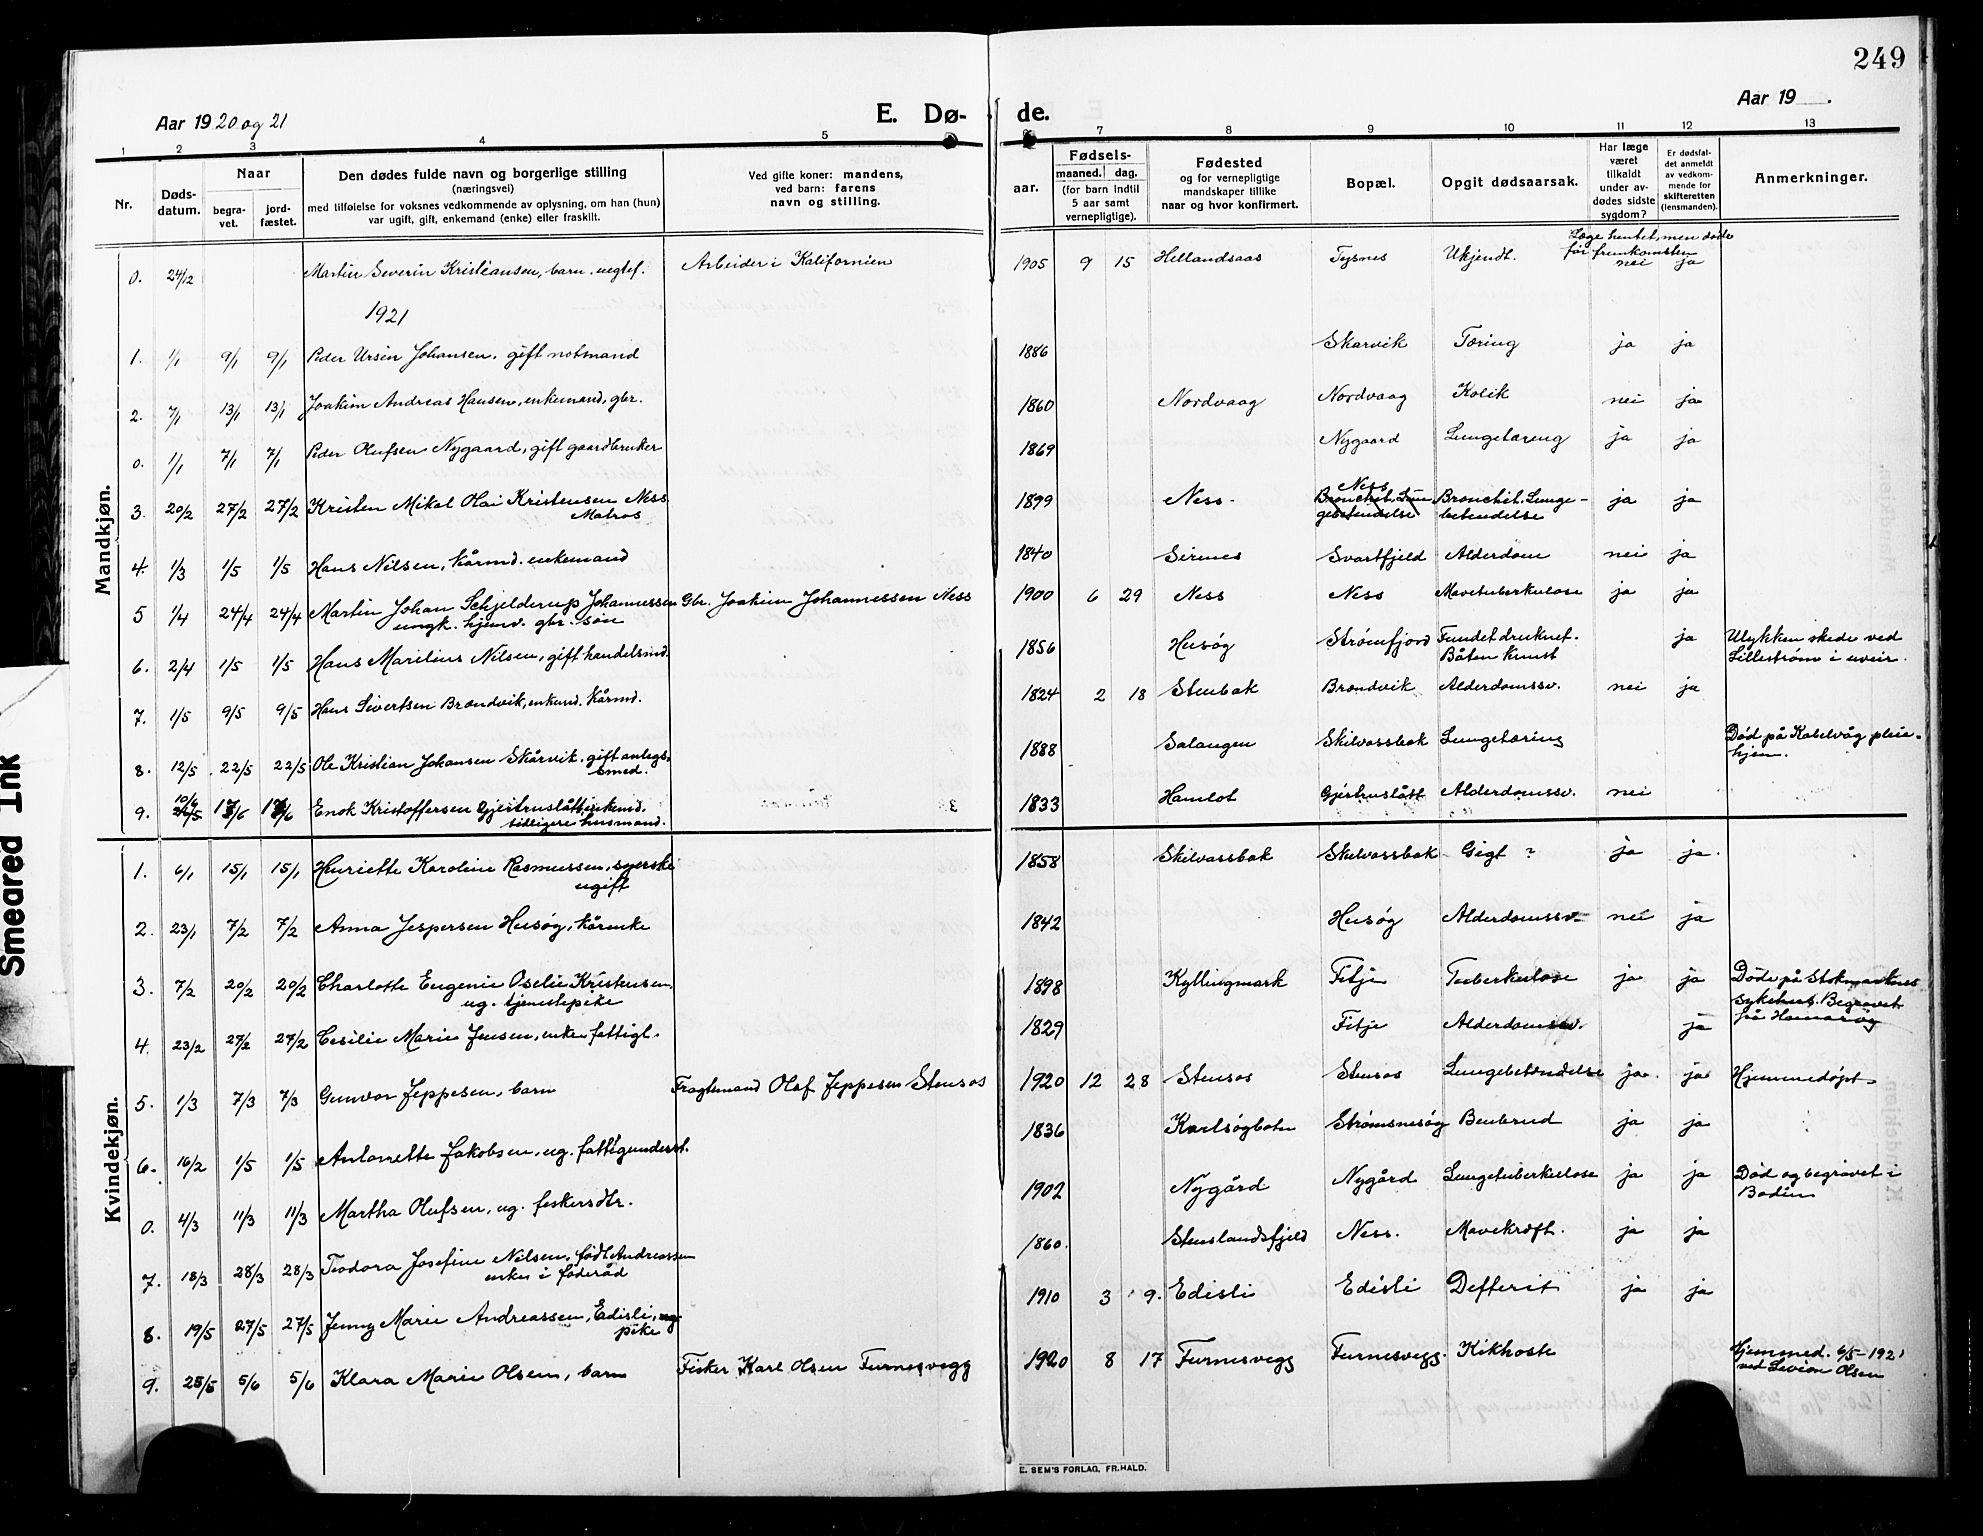 249
Aar 1920 og 21
E. Dø-
de.
Aar 19 .
1 2 3 4 5 6 7 8 9 10 11 12 13
Nr.
Døds-
datum.
Naar
begra-
vet.
jord-
fæstet.
Den dødes fulde navn og borgerlige stilling
(næringsvei)
med tilføielse for voksnes vedkommende av oplysning, om han (hun)
var ugift, gift, enkemand (enke) eller fraskilt.
Ved gifte koner: mandens,
ved barn: farens
navn og stilling.
aar.
Fødsels-
maaned. dag.
(for barn indtil
5 aar samt
vernepligtige).
Fødested
og for vernepligtige
mandskaper tillike
naar og hvor konfirmert.
Bopæl.
Opgit dødsaarsak.
Har læge
været
tilkaldt
under av-
dødes sidste
sygdom?
Er dødsfal-
det anmeldt
av vedkom-
mende for
skifteretten
(lensmanden).
Anmerkninger.
Mandkjøn.
0. 24/12 Martin Severin Kristiansen, barn. uegtef. Arbeider i Kalifornien 1905 9 15 Hellandsaas Tysnes Ukjendt. Læge hentet, men døde
før fremkomsten
nei ja
1921
1. 1/1 9/1 9/1 Peder Ursin Johansen, gift notmand 1886 Skarvik Tæring ja ja
2. 7/1 13/1 13/1 Joakim Andreas Hansen, enkemand, gbr. 1860 Nordvaag Nordvaag Kolik nei ja
0. 1/1 7/1 7/1 Peder Olufsen Nygaard, gift gaardbruker 1869 Nygaard Lungetæring ja ja
3. 20/2 27/2 27/2 Kristen Mikal Olai Kristensen Ness
Matros 1899 Ness. Ness
Bronchit, Lun
gebetendelse Bronchit. Lunge-
betendelse ja ja
4. 1/3 1/5 1/5 Hans Nilsen, kårmd. enkemand 1840 Sirines Svartfjeld Alderdom nei ja
5 1/4 24/4 24/4 Martin Johan Schjelderup Johannessen
ungk. hjemv. gbr. søn Gbr. Joakim Johannessen Ness 1900 6 29 Ness Ness Mavetuberkulose ja ja
6. 2/4 1/5 1/5 Hans Marilius Nilsen, gift handelsmd. 1856 Husøy Strømfjord Fundet druknet.
Båten kunst ja Ulykken skede ved
Lillestrøm i uveir.
7. 1/5 9/5 9/5 Hans Sivertsen Brændvik, enkemd. kårmd. 1824 2 18 Stenbak Brændvik Alderdomssv. nei ja
8. 12/5 22/5 22/5 Ole Kristian Johansen Skårvik, gift anlegs-
smed. 1888 Salangen Skilvassbak Lungetæring Død på Kabelvåg pleie-
hjem.
9. 10/6 17/6 17/6 Enok Kristoffersen Gjerstruslått, enkmd.
tidligere husmand. 1833 Hamlot Gjestruslått Alderdomssv. nei
Kvindekjøn.
1. 6/1 15/1 15/1 Henriette Karoline Rasmussen, syerske
ugift 1858 Skilvassbak Skilvassbak Gigt ? ja ja.
2. 23/1 7/2 7/2 Anna Jespersen Husøy, kårenke 1842 Husøy Alderdomssv. nei ja
3. 7/2 20/2 20/2 Charlotte Eugenie Oselie Kristensen,
ug. tjenestepike 1898 Kyllingmark Fitje Tuberkulose ja ja Døde på Stokmarknes
sykehus. Begravet
på Hamarøy
4. 23/2 27/2 27/2 Cecilie Marie Jensen, enke fattigl. 1829 Fitje Alderdomssv. ja
5. 1/3 7/3 7/3 Gunvor Jeppesen, barn Fragtemand Olaf Jeppesen Stensos 1920 12 28 Stensos Stensos Lungebetendelse ja. ja Hjemmedøpt.
6. 16/2 1/5 1/5 Antonette Jakobsen, ug. fattigunderst. 1836 Karlsøybotn Strømsnesøy Benbrud ja ja
0. 4/3 11/3 11/3 Martha Olufsen, ug. fiskersdtr. 1902 Nygård Nygård Lungetuberkulose ja ja Død og begravet i
Bodin
7. 18/3 28/3 28/3 Teodora Josefine Nilsen, født Andreassen
enke i føderåd 1860. Stenslandsfjeld Ness. Mavekræft. ja ja
8. 19/5 27/5 27/5 Jenny Marie Andreassen, Edisli, ug.
pike 1910 3 9. Edisli Edisli Defterit ja ja
9. 25/5 5/6 5/6 Klara Marie Olsen, barn Fisker Karl Olsen Furnesvegg 1920 8 17 Furnesvegg Furnesvegg. Kikhoste Hjemmed. 6/5-1921
ved Olsen
E. SEM'S FORLAG, FR.HALD.
Smeared Ink